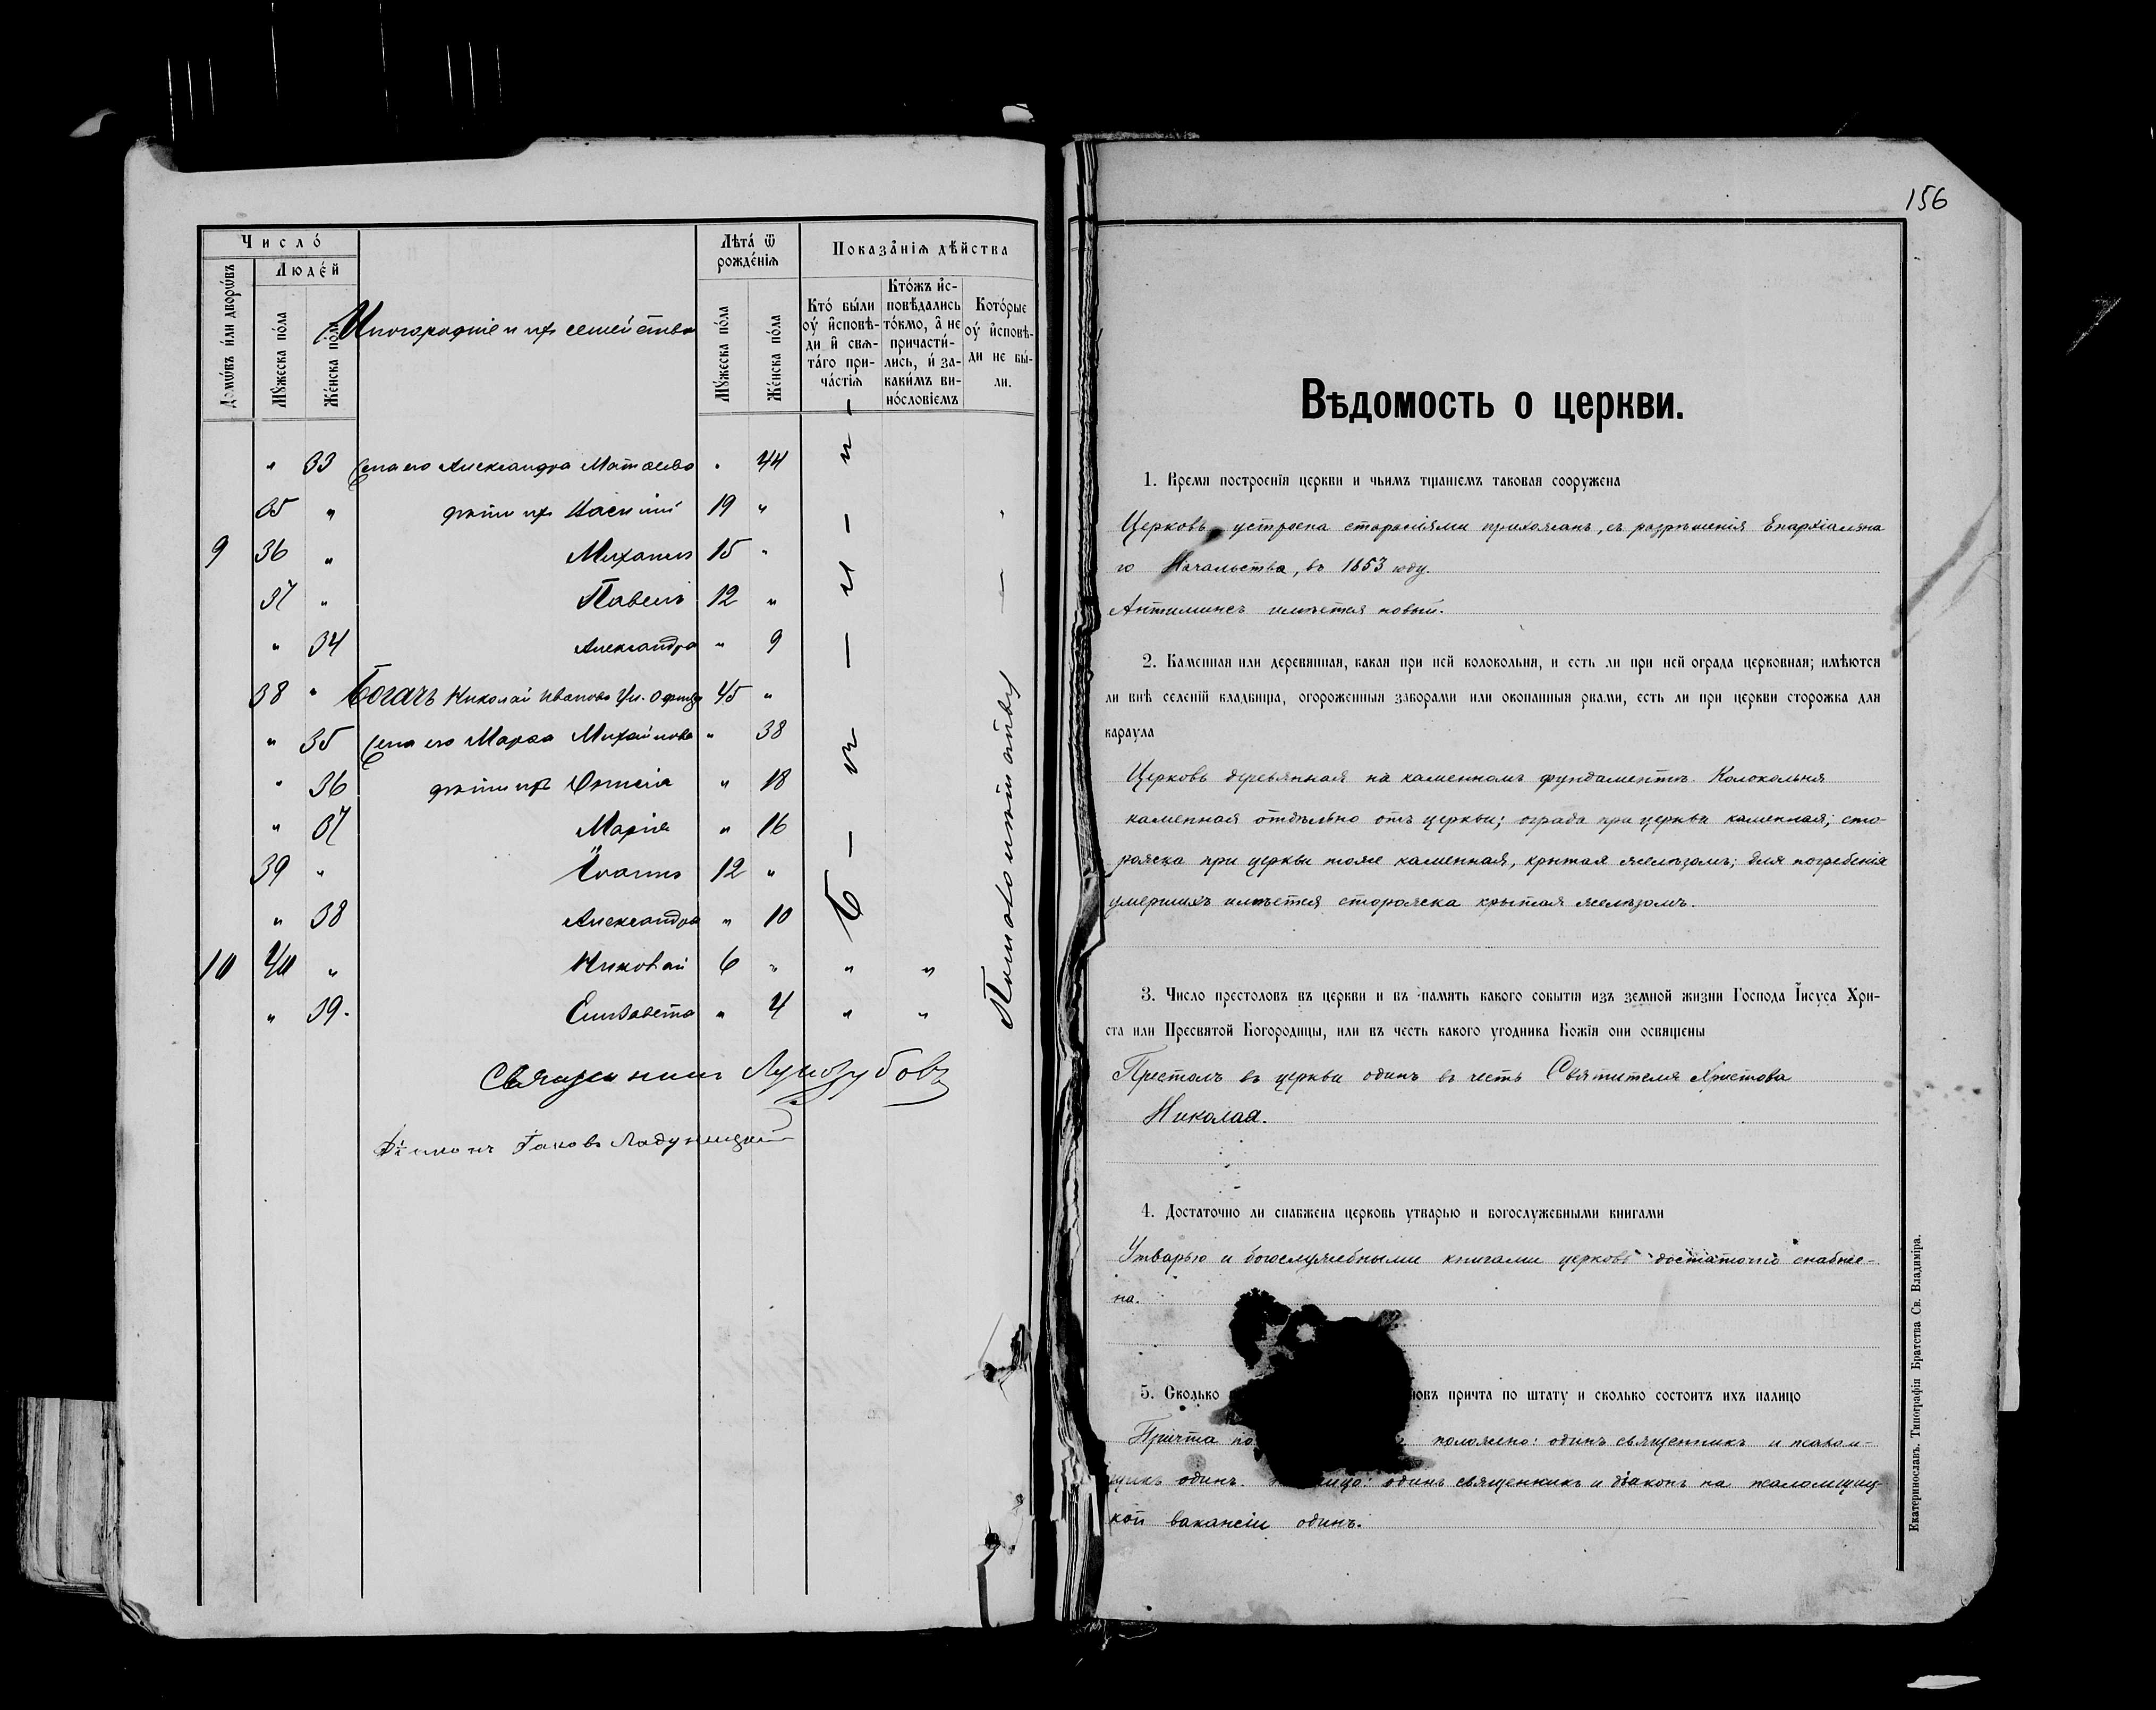 Число́
Люде́й
Домѡ́въ и҆лѝ дворѡ́въ
Мꙋ́жеска по́ла
Же́нска по́ла
Иногородніе и ихъ семейства
Лѣта́ ѿ рожде́нїѧ
Мꙋ́жеска по́ла
Же́нска по́ла
Показа̑нїѧ дѣ́йства
Кто́ бы́ли оу҆ и҆сповѣ́ди и҆ свѧта́го прича́стїѧ
Кто́жъ и҆сповѣ́дались то́кмо, а҆ не причасти́лись, и҆ за каки́мъ вино́словїемъ
Кото́рые оу҆ и҆сповѣ́ди не бы́ли.
" 33 Жена его Александра Матѳеева " 44
35 " дѣти ихъ Василій 19 "
9 36 " Михаилъ 15 "
37 " Павелъ 12 "
" 34 Александра " 9
38 " Богачъ Николай Ивановъ Ун. Офицеръ 45 "
" 35 Жена его Марѳа Михайлова " 38
" 36 дѣти ихъ " 18
" 37 Марія " 16
39 " Іоаннъ 12 "
" 38 Александра " 10
10 40 " Николай 6 " " "
" 39. Елизавета " 4 " "
Б — ы — л — и —
По малолѣтству
Священникъ Лукозубовъ
Діаконъ Іаковъ Ладушицкій
156
Вѣдомость о церкви.
1. Время построенія церкви и чьимъ тщаніемъ таковая сооружена
Церковь устроена стараніями прихожанъ, съ разрѣшенія Епархіальна
го Начальства, въ 1853 году.
Антиминсъ имѣется новый.
2. Каменная или деревянная, какая при ней колокольня, и есть ли при ней ограда церковная; имѣются
ли внѣ селеній кладбища, огороженныя заборами или окопанныя рвами, есть ли при церкви сторожка для
караула
Церковь деревянная на каменномъ фундаментѣ. Колокольня
каменная отдѣльно отъ церкви; ограда при церкви каменная; сто-
рожка при церкви тоже каменная, крытая желѣзомъ; для погребенія
умершихъ имѣется сторожка крытая желѣзомъ.
3. Число престоловъ въ церкви и въ память какого событія изъ земной жизни Господа Іисуса Хри-
ста или Пресвятой Богородицы, или въ честь какого угодника Божія они освящены
Престолъ въ церкви одинъ въ честь Святителя Христова
Николая.
4. Достаточно ли снабжена церковь утварью и богослужебными книгами
Утварью и богослужебными книгами церковь достаточно снабже-
на.
5. Сколько новъ причта по штату и сколько состоитъ ихъ налицо
Причта по положено: одинъ священникъ и псалом-
щикъ одинъ. лицо: одинъ священникъ и діаконъ на псаломщиц-
кой вакансіи одинъ.
Екатеринославъ. Типографія Братства Св. Владиміра.